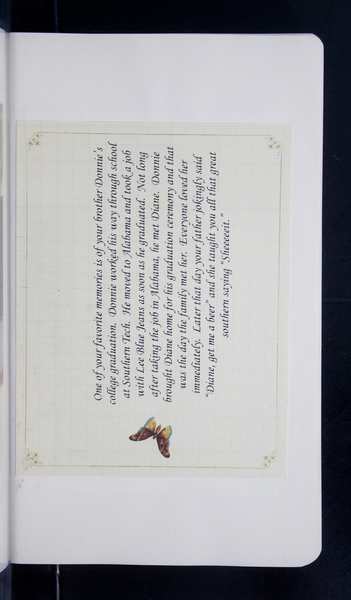 One of your favorite memories is of your brother Donnie's
college graduation. Donnie worked his way through school
at Southern Tech. He moved to Alabama and took a job
with Lee Blue Jeans as soon as he graduated. Not long
after taking the job in Alabama, he met Diane. Donnie
brought Diane home for his graduation ceremony and that
was the day the family met her. Everyone loved her
immediately. Later that day your father jokingly said
"Diane, get me a beer" and she taught you all that great
southern saying "Sheeeeeit."